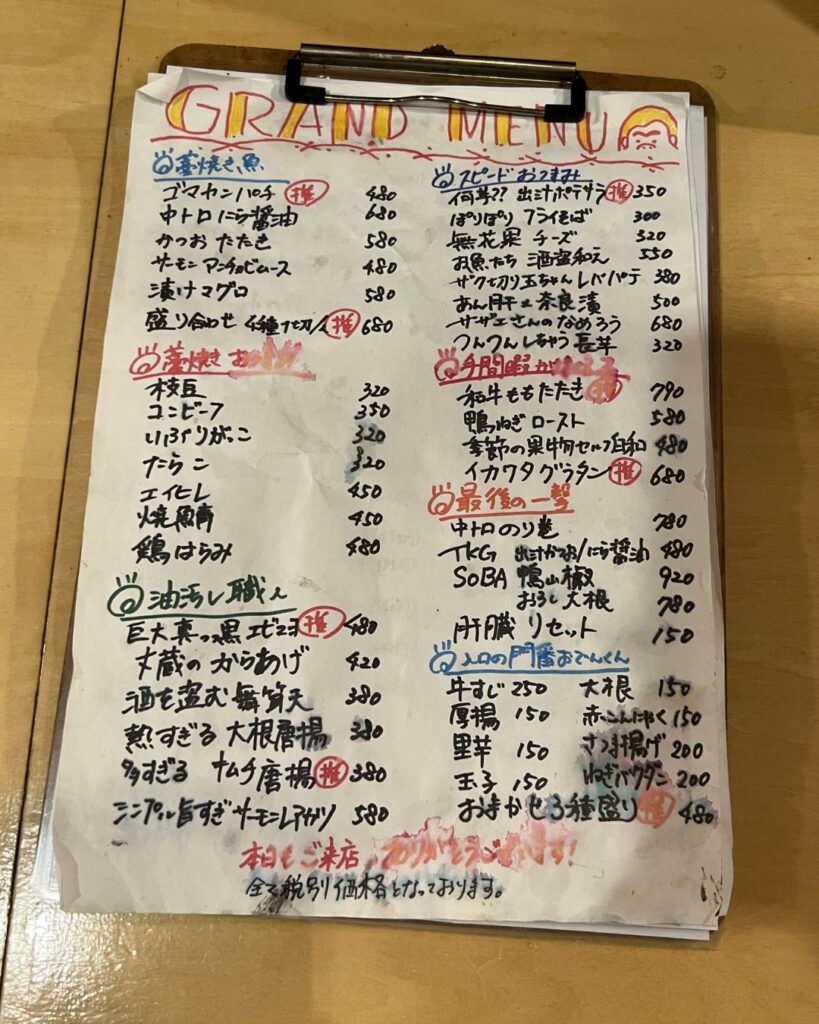 GRAND MENU
藁焼き魚
ゴマカンパチ 推 480
中トロにら醤油 680
かつおたたき 580
サーモンアンチョビムース 480
漬けマグロ 580
盛り合わせ 4種 推 680
藁焼き
枝豆 320
コンビーフ 350
いぶりがっこ 320
たらこ 320
エイヒレ 450
焼魚 450
鶏はらみ 480
油汚し職人
巨大真っ黒エビマヨ 推 480
丈蔵のからあげ 420
酒を盗む舞算天 380
熱すぎる 大根唐揚 380
多すぎる ナムチ唐揚 推 380
シンプル旨すぎサーモンレアカツ 580
スピードおつまみ
何芋?? 出汁ポテサラ 推 350
ぽりぽり フライそば 300
無花果 チーズ 320
お魚たち 酒盗和え 550
ザク切り玉ちゃんレバパテ 380
あん肝と奈良漬 500
サザエさんのなめろう 680
つんつんしちゃう長芋 320
手間暇か
和牛ももたたき 推 790
鴨ねぎロースト 580
季節の果物セルフ白和 480
イカワタグラタン 推 680
最後の一撃
中トロのり巻 780
TKG 出汁かつお/にら醤油 480
SOBA 鴨山椒 920
おろし大根 780
肝臓 リセット 150
入口の門番おでんくん
牛すじ 250 大根 150
厚揚 150 赤こんにゃく 150
里芋 150 さつま揚げ 200
玉子 150 ねぎバクダン 200
おまかせ3種盛り 推 480
本日もご来店、ありがとうございます!
全て税別価格となっております。